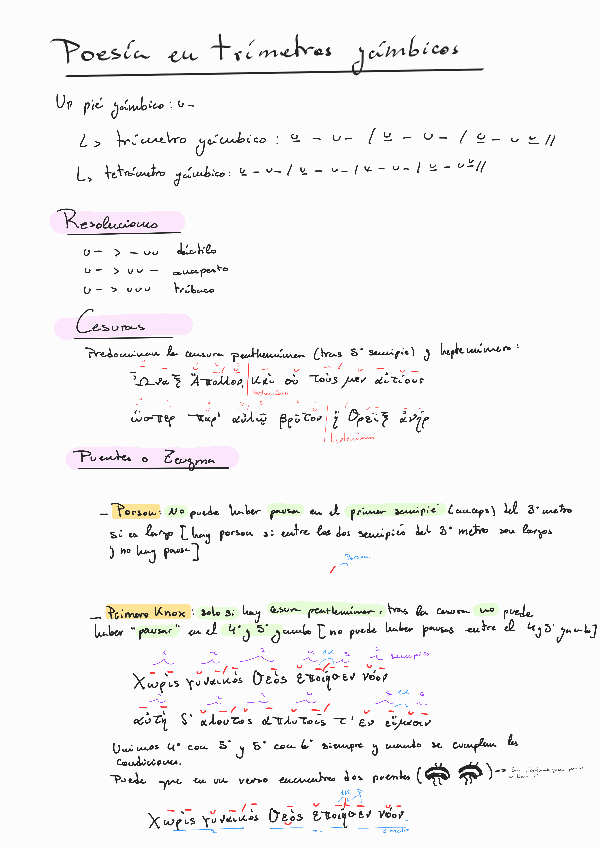 Poesía en trímetros yámbicos
Un pié yámbico: u –
L> trímetro yámbico: u – u – / u – u – / u – u u //
L> tetrámetro yámbico: u – u – / u – u – / u – u – / u – u u //
Resoluciones
u – > – u u dáctilo
u – > u u – anapesto
u – > u u u tríbaco
Cesuras
Predominan la censura penthemímera (tras 5º semipié) y heptemímera:
Ὦναξ Ἄπολλον, καὶ σὺ τοὺς μὲν αἰτίους
ὥσπερ παρ' αὐλῷ βρῦτον ἢ Θρέϊξ ἀνὴρ
Puentes o Zeugma
– Porson: No puede haber pausa en el primer semipié (anceps) del 3º metro
si es largo [hay porson si entre los dos semipiés del 3º metro son largos
y no hay pausa]
Porson
– Primero Knox: solo si hay cesura penthemímera, tras la cesura no puede
haber "pausas" en el 4º y 5º yambo [no puede haber pausas entre el 4 y 5 yambo]
semipiés
Χωρὶς γυναικὸς θεὸς ἐποίησεν νόον
αὐτὴ δ' ἄλουτος ἀπλύτοις τ' ἐν εἵμασιν
Unimos 4º con 5º y 5º con 6º siempre y cuando se cumplan las
condiciones.
Puede que en un verso encuentres dos puentes (
) ->
Χωρὶς γυναικὸς θεὸς ἐποίησεν νόον